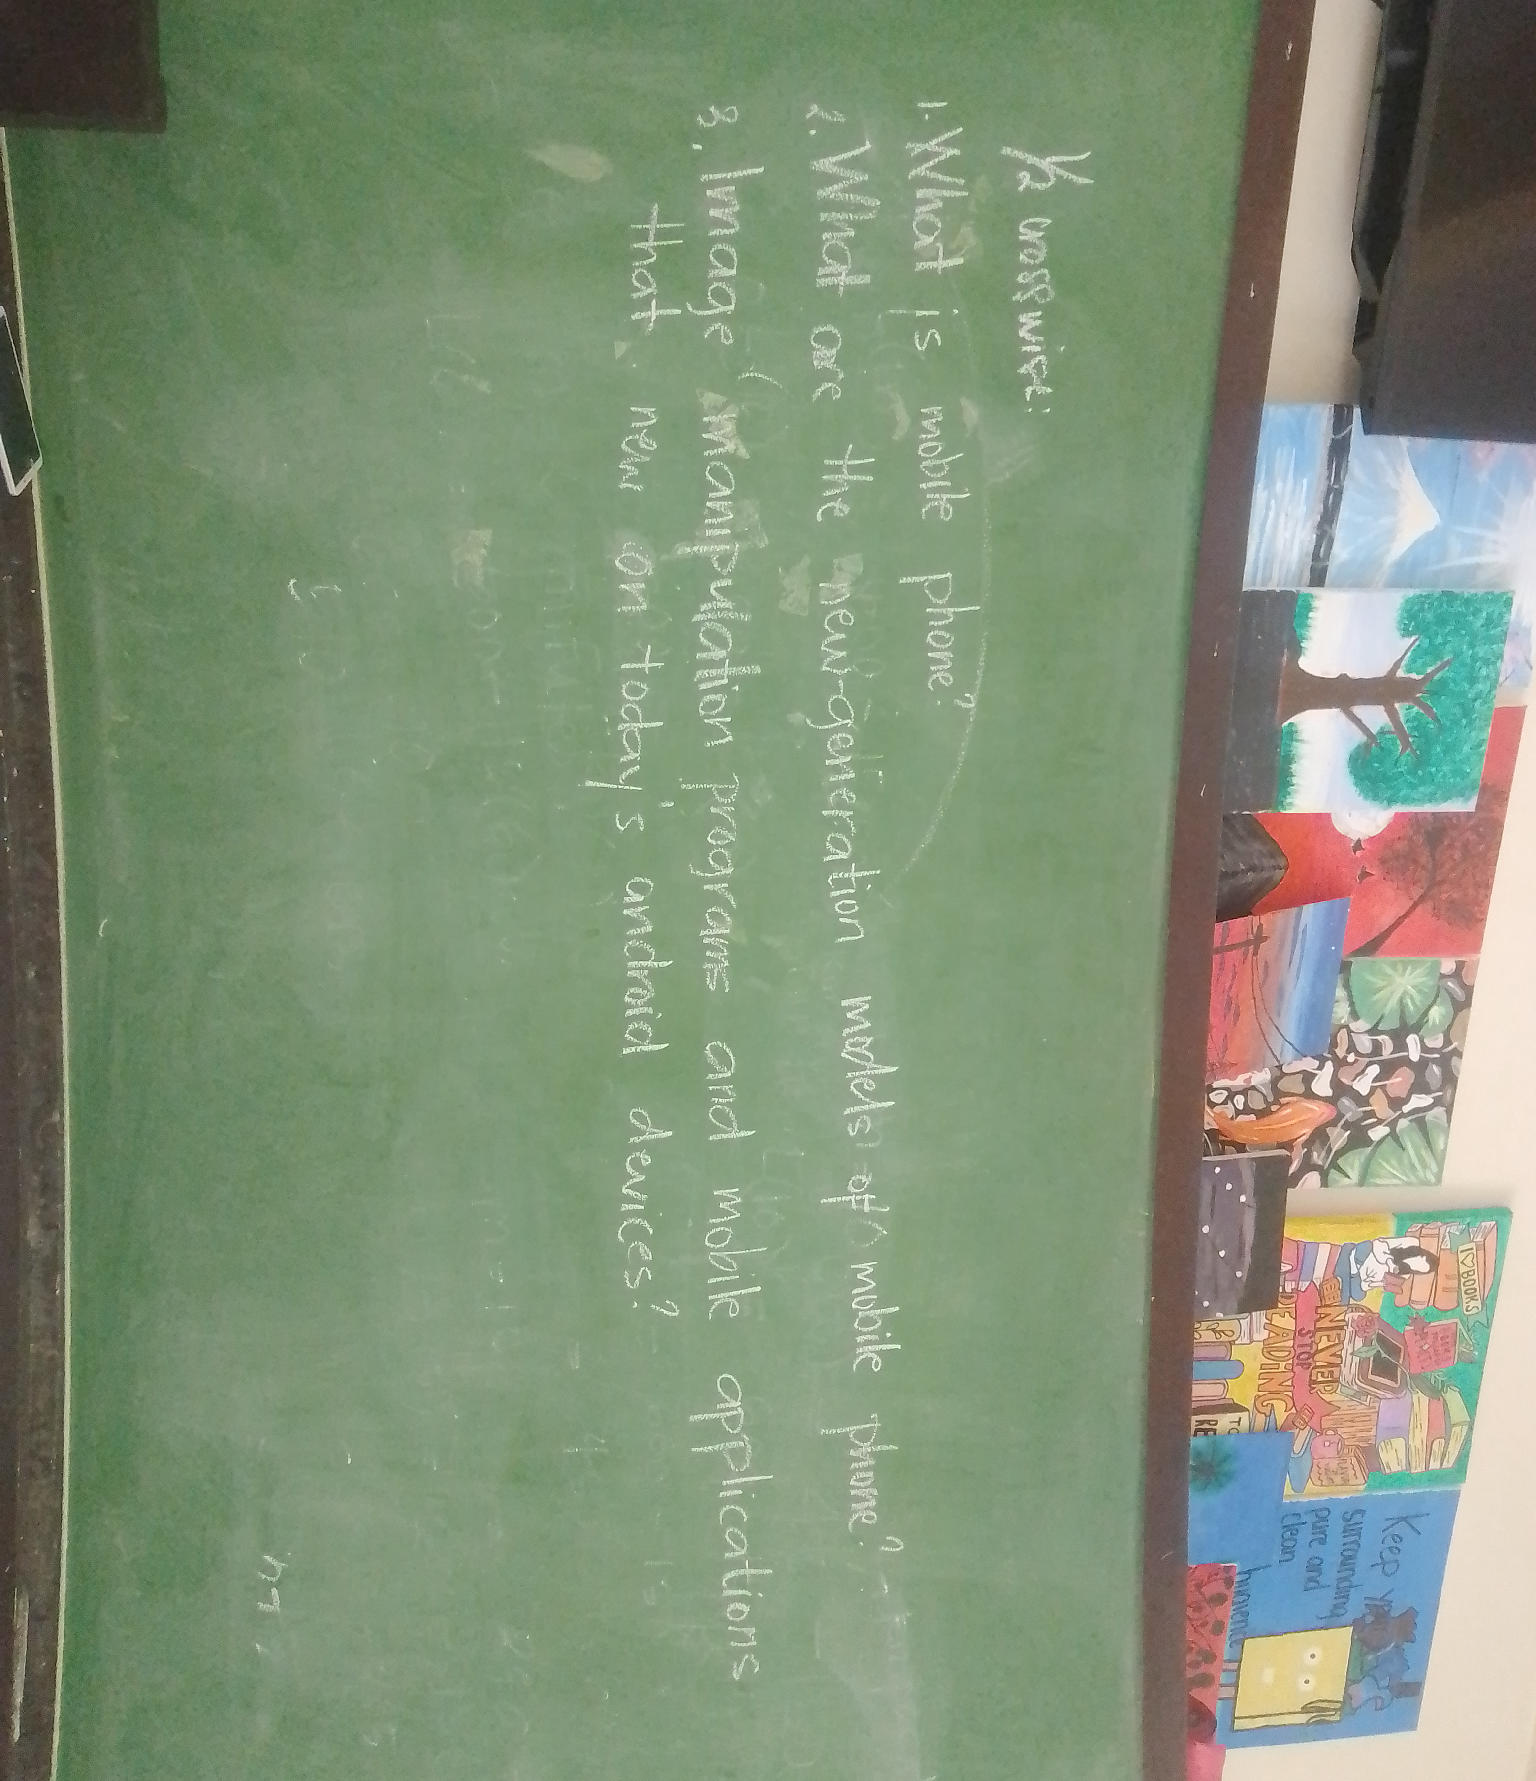 1/2 crosswise:
1. What is mobile phone?
2. What are the new-generation models of mobile phone?
3. Image manipulation programs and mobile applications
that new on today's android devices?
I ♡ BOOKS
NEVER
STOP
READING
Keep
surrounding
pure and
clean